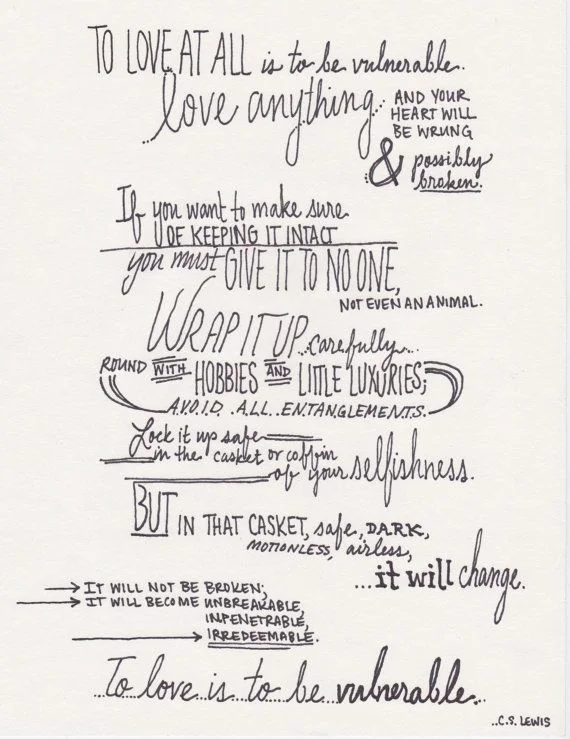 TO LOVE AT ALL is to be vulnerable.
love anything... AND YOUR
HEART WILL
BE WRUNG
& possibly
broken.
If you want to make sure
OF KEEPING IT INTACT
you must GIVE IT TO NO ONE,
NOT EVEN AN ANIMAL.
WRAP IT UP...carefully...
ROUND WITH HOBBIES AND LITTLE LUXURIES;
A.V.O.I.D. .A.L.L. .E.N.T.A.N.G.L.E.M.E.N.T.S.
Lock it up safe
in the casket or coffin
of your selfishness.
BUT IN THAT CASKET, safe, DARK,
MOTIONLESS, airless,
...it will change.
IT WILL NOT BE BROKEN;
IT WILL BECOME UNBREAKABLE,
INPENETRABLE,
IRREDEEMABLE.
...To love is to be vulnerable...
..C.S. LEWIS